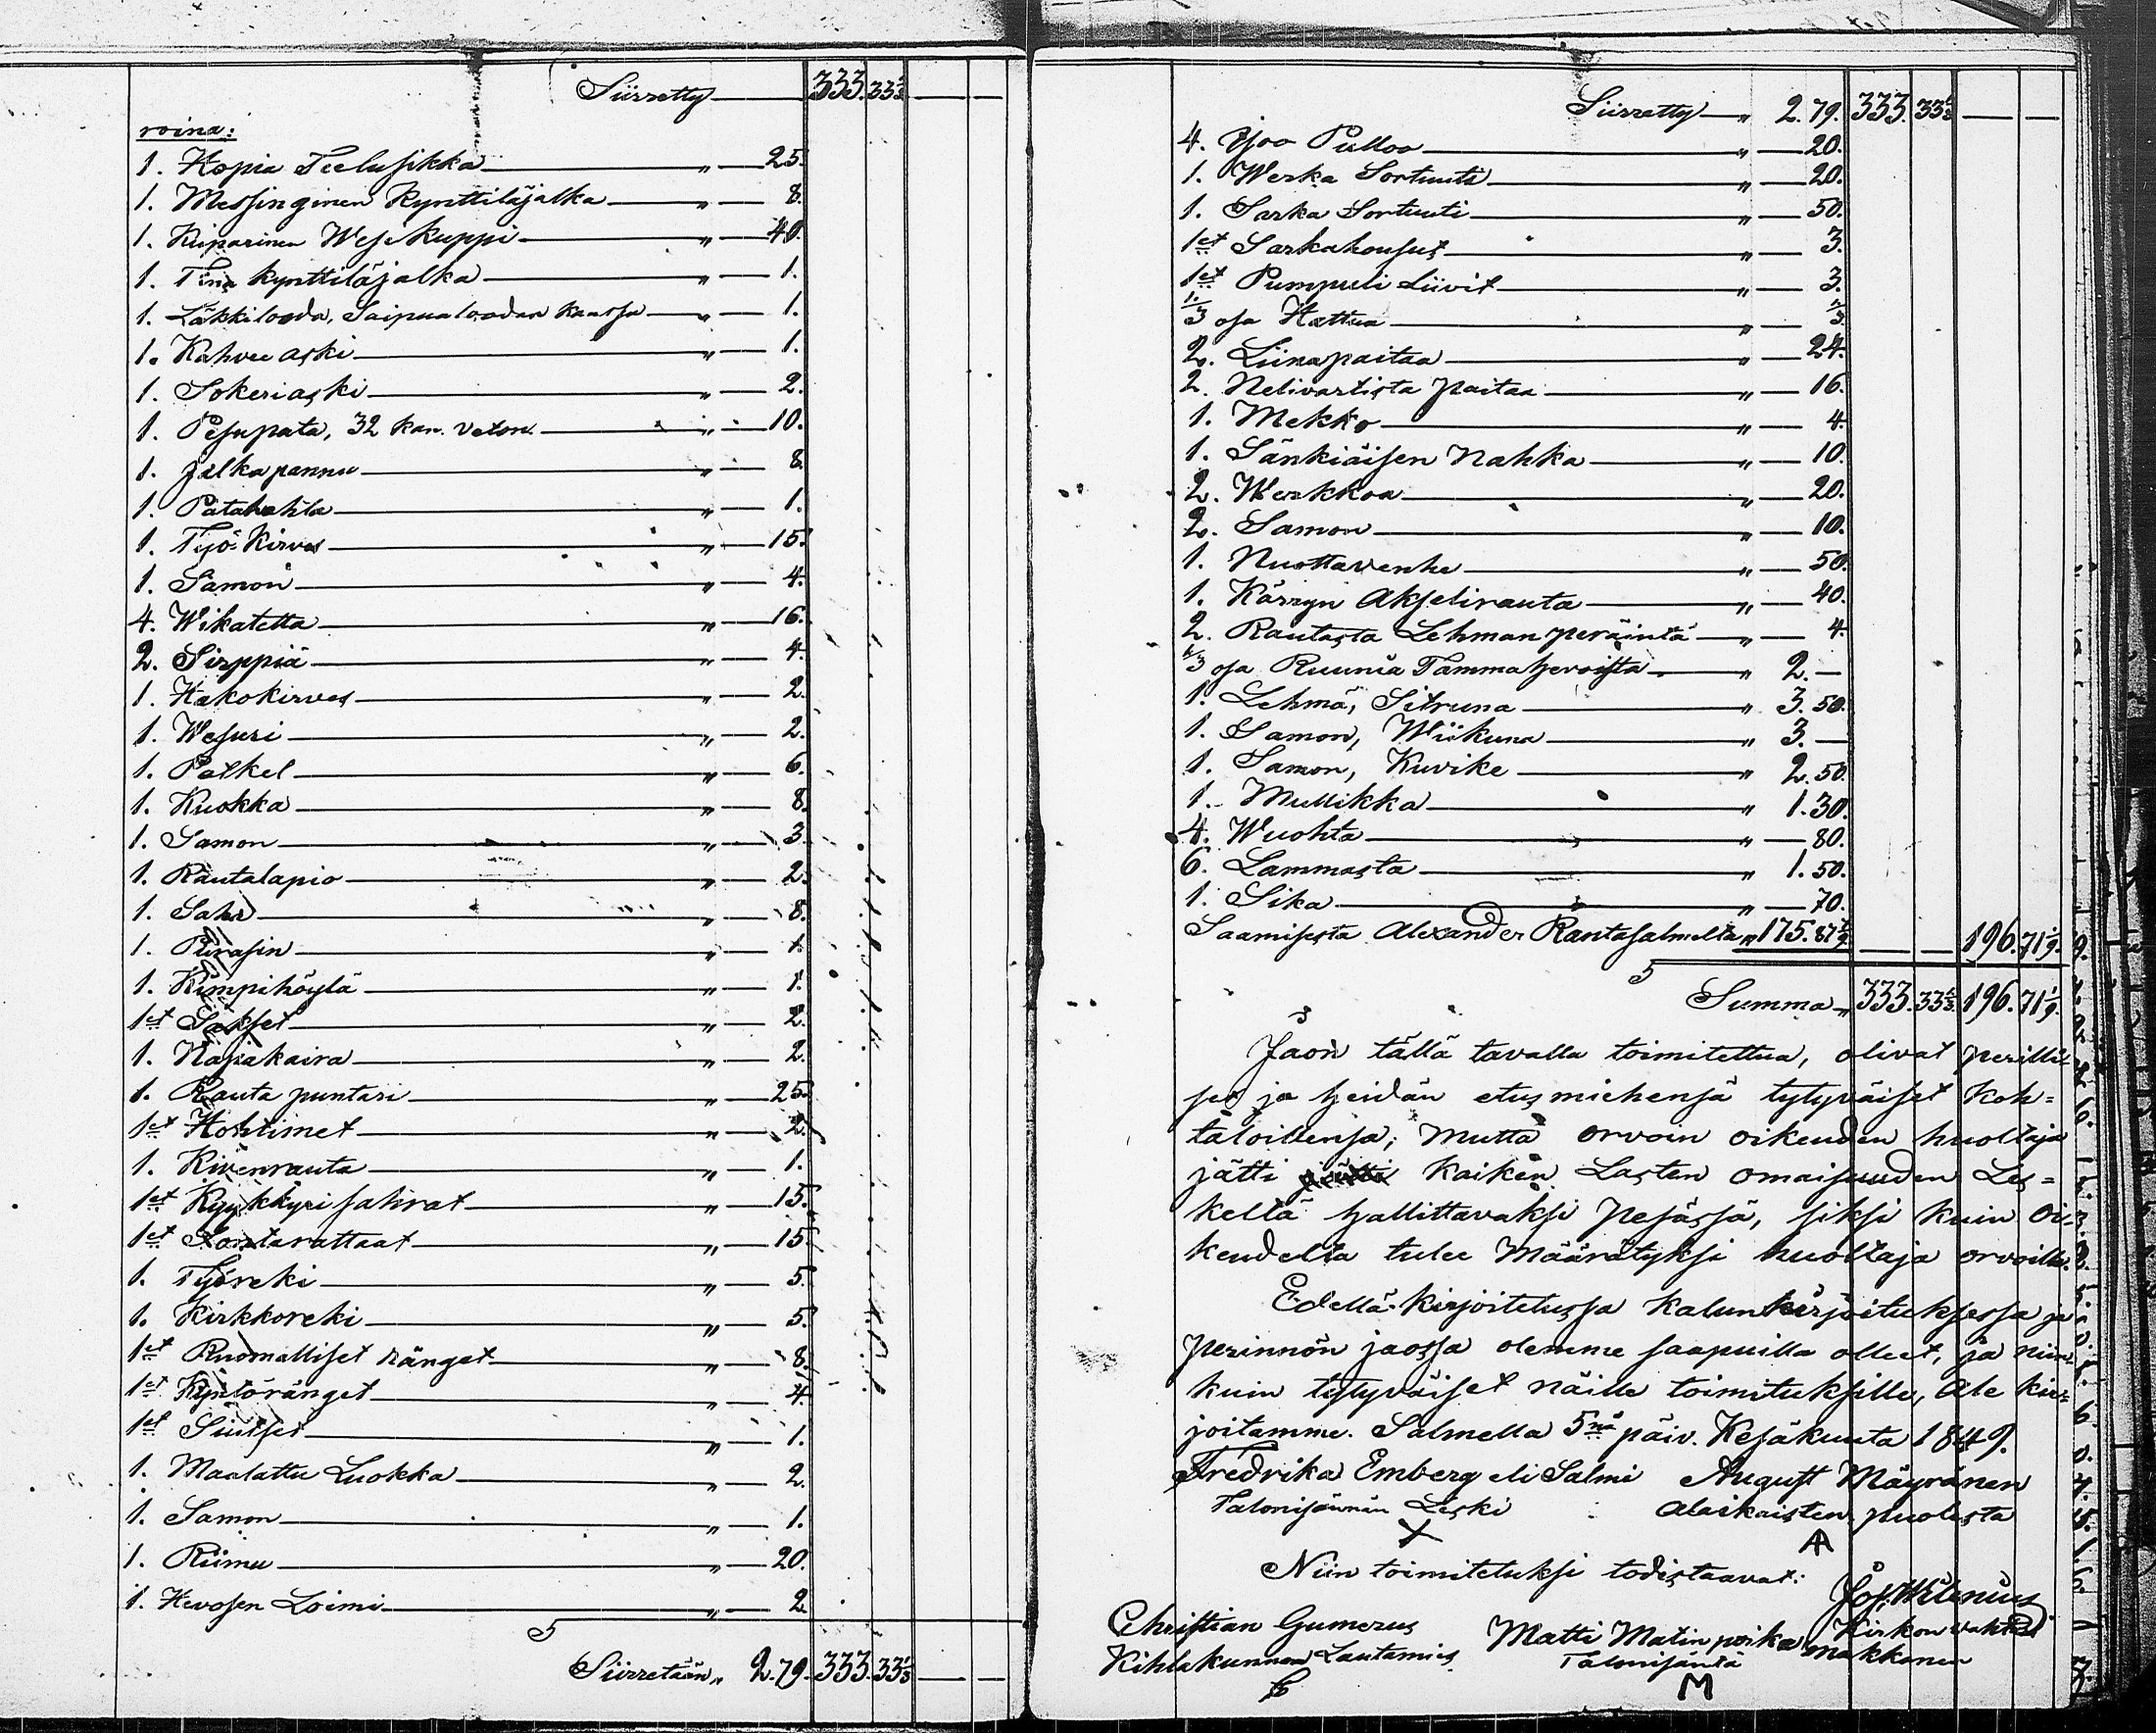 Siirretty 333. 33⅓ — —
roina:
1. Hopia Teelusikka „ — 25.
1. Messinginen Kynttiläjalka „ — 8.
1. Kuparinen Wesikuppi „ — 40.
1. Tina kynttiläjalka „ — 1.
1. Läkkilooda, Saipualoodan kanssa „ — 1.
1. Kahvee aski „ — 1.
1. Sokeriaski „ — 2.
1. Pesupata, 32 kan. veton. „ — 10.
1. Jalkapannu „ — 8.
1. Patahahla „ — 1.
1. Työ-Kirves „ — 15.
1. Samon „ — 4.
4. Wikatetta „ — 16.
2. Sirppiä „ — 4.
1. Hakokirves „ — 2.
1. Wesuri „ — 2.
1. Petkel „ — 6.
1. Kuokka „ — 8.
1. Samon „ — 3.
1. Rautalapio „ — 2.
1. Saha „ — 8.
1. Purasin „ — 1.
1. Kimpihöylä „ — 1.
1et Sakset „ — 2.
1. Napakaira „ — 2.
1. Rauta puntari „ — 25.
1et Hohtimet „ — 2.
1. Kivenrauta „ — 1.
1et Kyykkyri sahrat „ — 15.
1et Sontarattaat „ — 15.
1. Työreki „ — 5.
1. Kirkkoreki „ — 5.
1et Ruomalliset ränget „ — 8.
1et Kyntöränget „ — 4.
1et Suitset „ — 1.
1. Maalattu Luokka „ — 2.
1. Samon „ — 1.
1. Riimu „ — 20.
1. Hevosen Loimi „ — 2.
Siirretään „ 2. 79. 333. 33⅓ — —
Siirretty „ 2. 79. 333. 33⅓ — —
4. Isoo Pulloo „ — 20.
1. Werka Sortuuti „ — 20.
1. Sarka Sortuuti „ — 50.
1et Sarkahousut „ — 3.
1et Pumpuli Liivit „ — 3.
⅓ osa Hattua „ — ⅔
2. Liinapaitaa „ — 24.
2. Nelivartista paitaa „ — 16.
1. Mekko „ — 4.
1. Sänkiäisen Nahka „ — 10.
2. Werkkoa „ — 20.
2. Samon „ — 10.
1. Nuottavenhe „ — 50.
1. Kärryn Akselirauta „ — 40.
2. Rautasta Lehman peräintä „ — 4.
⅓ osa Ruunia Tammahevoista „ 2. —
1. Lehmä, Sitruna „ 3. 50.
1. Samon, Wiikuna „ 3. —
1. Samon, Kuvike „ 2. 50.
1. Mullikka „ 1. 30.
4. Wuohta „ — 80.
6. Lammasta „ 1. 50.
1. Sika „ — 70.
Saamisesta Alexander Rantasalmelta „ 175. 87 — — 196. 71 1/9.
Summa „ 333. 33⅓ 196. 71 1/9.
Jaon tällä tavalla toimitettua, olivat perilli-
set ja heidän etusmiehensä tytyväiset koh=
taloillensa; mutta orvoin oikeuden huoltaja
jätti kaiken Lasten omaisuuden Les=
kellä hallittavaksi pesässä, siksi kuin Oi-
keudelta tulee määrätyksi huoltaja orvoille.
Edellä kirjoitetussa kalunkirjoituksessa ja
perinnön jaossa olemme saapuilla olleet, ja niin-
kuin tytyväiset näille toimituksille, Ale kir-
joitamme. Salmella 5nä päiv. Kesäkuuta 1849.
Fredrika Emberg eli Salmi August Mäyränen
Talonisännän Leski Alaikaisten puolesta
Niin toimitetuksi todistaavat:
Christian Gumerus Matti Matin poika Makkonen
Kihlakunnan Lautamies Talonisäntä
M
Kirkon vahti